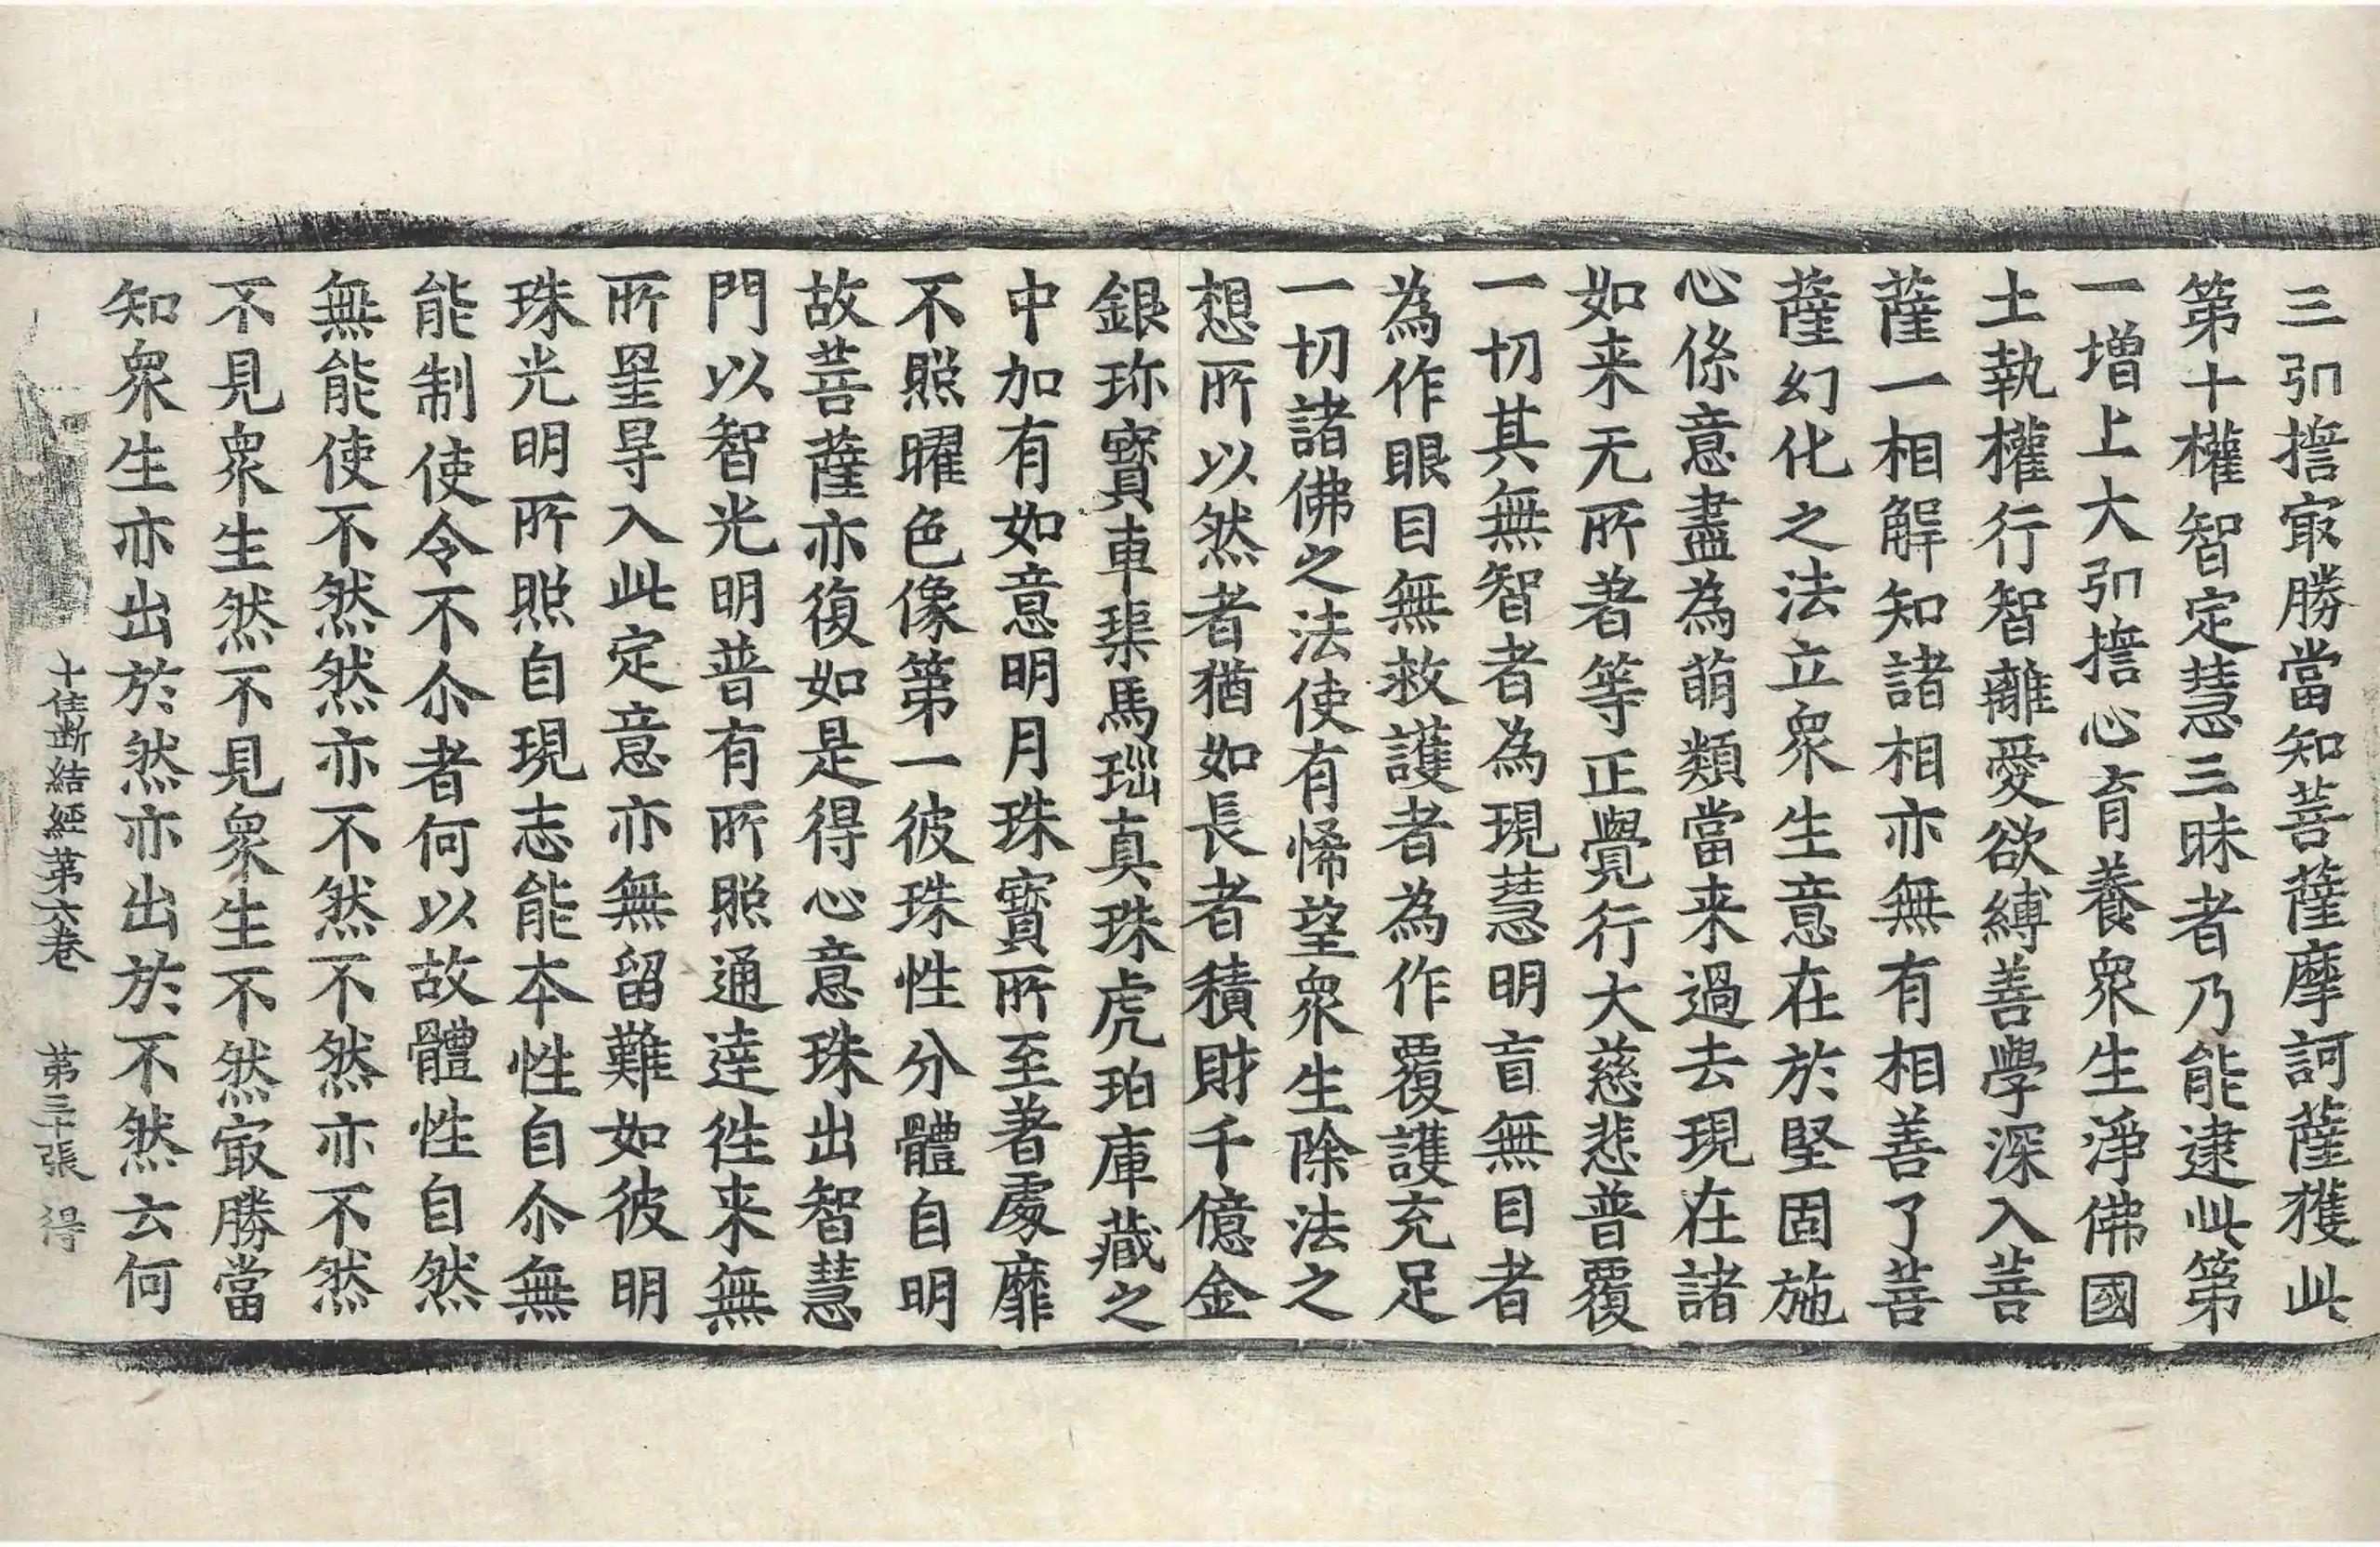 三弘擔㝡勝當知菩薩摩訶薩獲此
第十權智定慧三昧者乃能逮此第
一增上大弘擔心育養衆生淨佛國
土執權行智離愛欲縛善學深入菩
薩一相解知諸相亦無有相善了菩
薩幻化之法立衆生意在於堅固施
心係意盡為萌類當来過去現在諸
如来无所著等正覺行大慈悲普覆
一切其無智者為現慧明盲無目者
為作眼目無救護者為作覆護充足
一切諸佛之法使有悕望衆生除法之
想所以然者猶如長者積財千億金
銀珎寳車璖馬瑙真珠虎珀庫藏之
中加有如意明月珠寳所至著處靡
不照曜色像第一彼珠性分體自明
故菩薩亦復如是得心意珠出智慧
門以智光明普有所照通達徃来無
所罣㝵入此定意亦無留難如彼明
珠光明所照自現志能本性自尒無
能制使令不尒者何以故體性自然
無能使不然然亦不然不然亦不然
不見衆生然不見衆生不然㝡勝當
知衆生亦出於然亦出於不然云何
十住断結經第六卷　第三十張　得